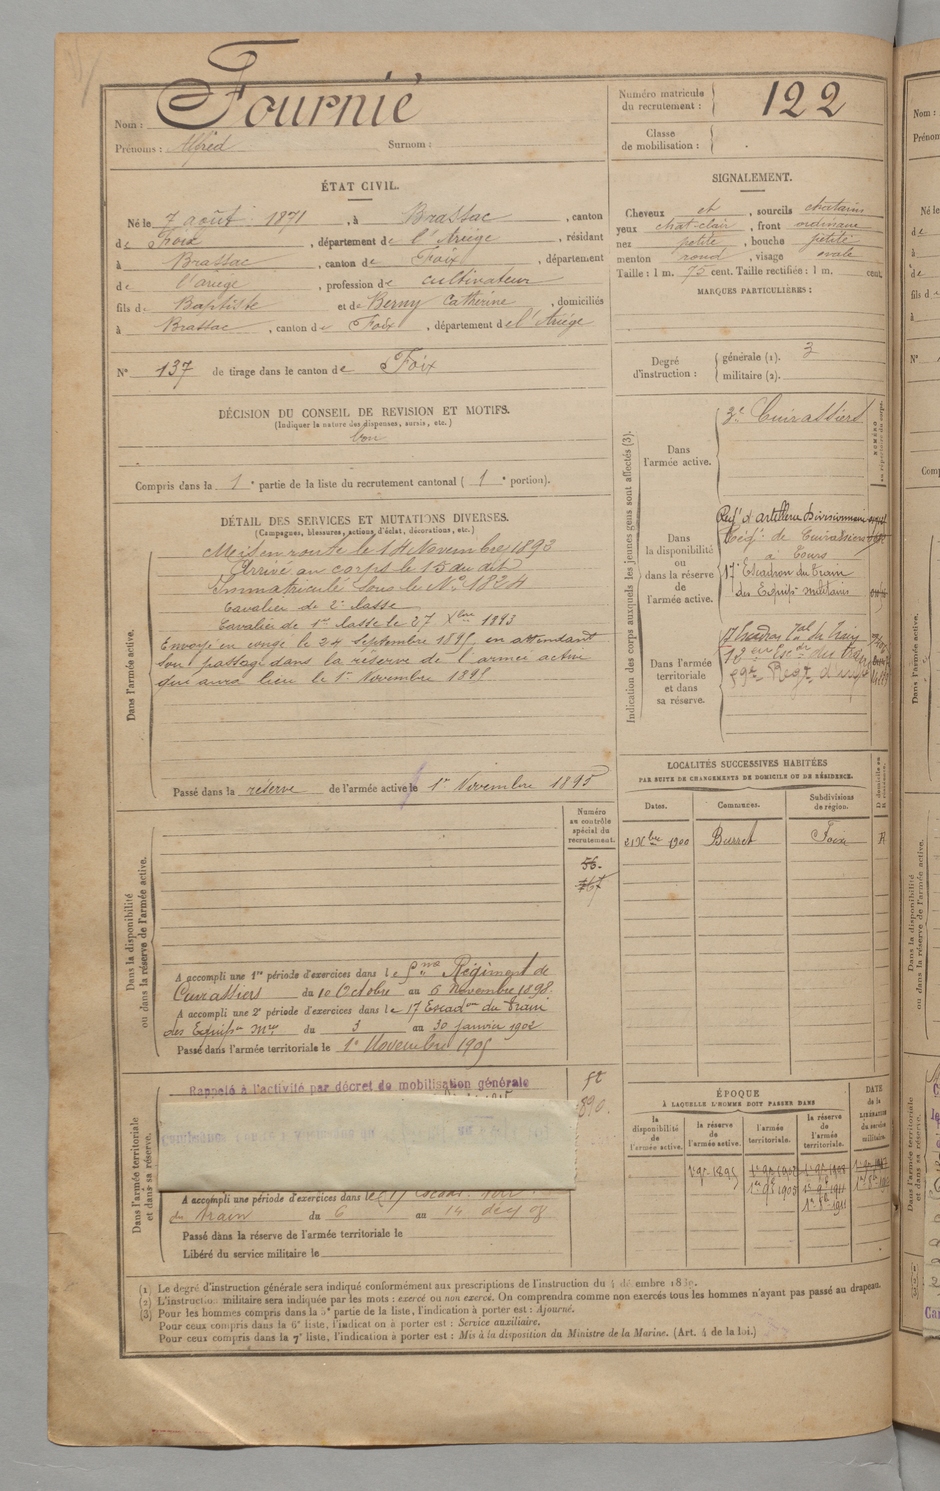 Nom : Fournié
Prénoms : Alfred Surnom :
Numéro matricule du recrutement : 122
Classe de mobilisation :
ÉTAT CIVIL.
Né le 7 août 1871, à Brassac, canton
de Foix, département de l'Ariège, résidant
à Brassac, canton de Foix, département
de l'Ariège, profession de cultivateur
fils de Baptiste et de Berny Catherine, domiciliés
à Brassac, canton de Foix, département de l'Ariège
N° 137 de tirage dans le canton de Foix
SIGNALEMENT.
Cheveux et, sourcils chatains
yeux chat-clair, front ordinaire
nez petite, bouche petite
menton rond, visage ovale
Taille : 1 m. 72 cent. Taille rectifiée : 1 m. cent.
MARQUES PARTICULIÈRES :
Degré d'instruction : générale (1). 3
militaire (2).
DÉCISION DU CONSEIL DE REVISION ET MOTIFS.
(Indiquer la nature des dispenses, sursis, etc.)
bon
Compris dans la 1e partie de la liste du recrutement cantonal ( 1e portion).
DÉTAIL DES SERVICES ET MUTATIONS DIVERSES.
(Campagnes, blessures, actions d'éclat, décorations, etc.)
Dans l'armée active.
Mis en route le 14 Novembre 1892
Arrivé au corps le 15 du dit
Immatriculé sous le N° 1824
Cavalier de 2e classe
Cavalier de 1re classe le 27 Xbre 1893
Envoyé en congé le 24 Septembre 1895 en attendant
son passage dans la réserve de l'armée active
qui aura lieu le 1er Novembre 1895
Passé dans la réserve de l'armée active le 1er Novembre 1895
Indication des corps auxquels les jeunes gens sont affectés (3).
Dans l'armée active.
3e Cuirassiers
Dans la disponibilité ou dans la réserve de l'armée active.
Regt d'artillerie Divisionnaire
Regt de Cuirassiers
à Tours
17e Escadron du Train
des Equip. militaires
Dans l'armée territoriale et dans sa réserve.
LOCALITÉS SUCCESSIVES HABITÉES
PAR SUITE DE CHANGEMENTS DE DOMICILE OU DE RÉSIDENCE.
Dates. Communes. Subdivisions de région.
21 Xbre 1900 Burret Foix R
Dans la disponibilité ou dans la réserve de l'armée active.
Numéro au contrôle spécial du recrutement.
56
767
A accompli une 1re période d'exercices dans le Régiment de
Cuirassiers du 10 Octobre au 6 Novembre 1898.
A accompli une 2e période d'exercices dans le 17 Escadon du Train
des Equips Mres du 3 au 30 janvier 1902
Passé dans l'armée territoriale le 1er Novembre 1905
Dans l'armée territoriale et dans sa réserve.
Rappelé à l'activité par décret de mobilisation générale
A accompli une période d'exercices dans le
du Train du 6 au 14
Passé dans la réserve de l'armée territoriale le
Libéré du service militaire le
ÉPOQUE
À LAQUELLE L'HOMME DOIT PASSER DANS
la disponibilité de l'armée active. la réserve de l'armée active. l'armée territoriale. la réserve de l'armée territoriale.
DATE de la LIBÉRATION du service militaire.
(1) Le degré d'instruction générale sera indiqué conformément aux prescriptions de l'instruction du 4 décembre 1889.
(2) L'instruction militaire sera indiquée par les mots : exercé ou non exercé. On comprendra comme non exercés tous les hommes n'ayant pas passé au drapeau.
(3) Pour les hommes compris dans la 5e partie de la liste, l'indication à porter est : Ajourné.
Pour ceux compris dans la 6e liste, l'indication à porter est : Service auxiliaire.
Pour ceux compris dans la 7e liste, l'indication à porter est : Mis à la disposition du Ministre de la Marine. (Art. 4 de la loi.)